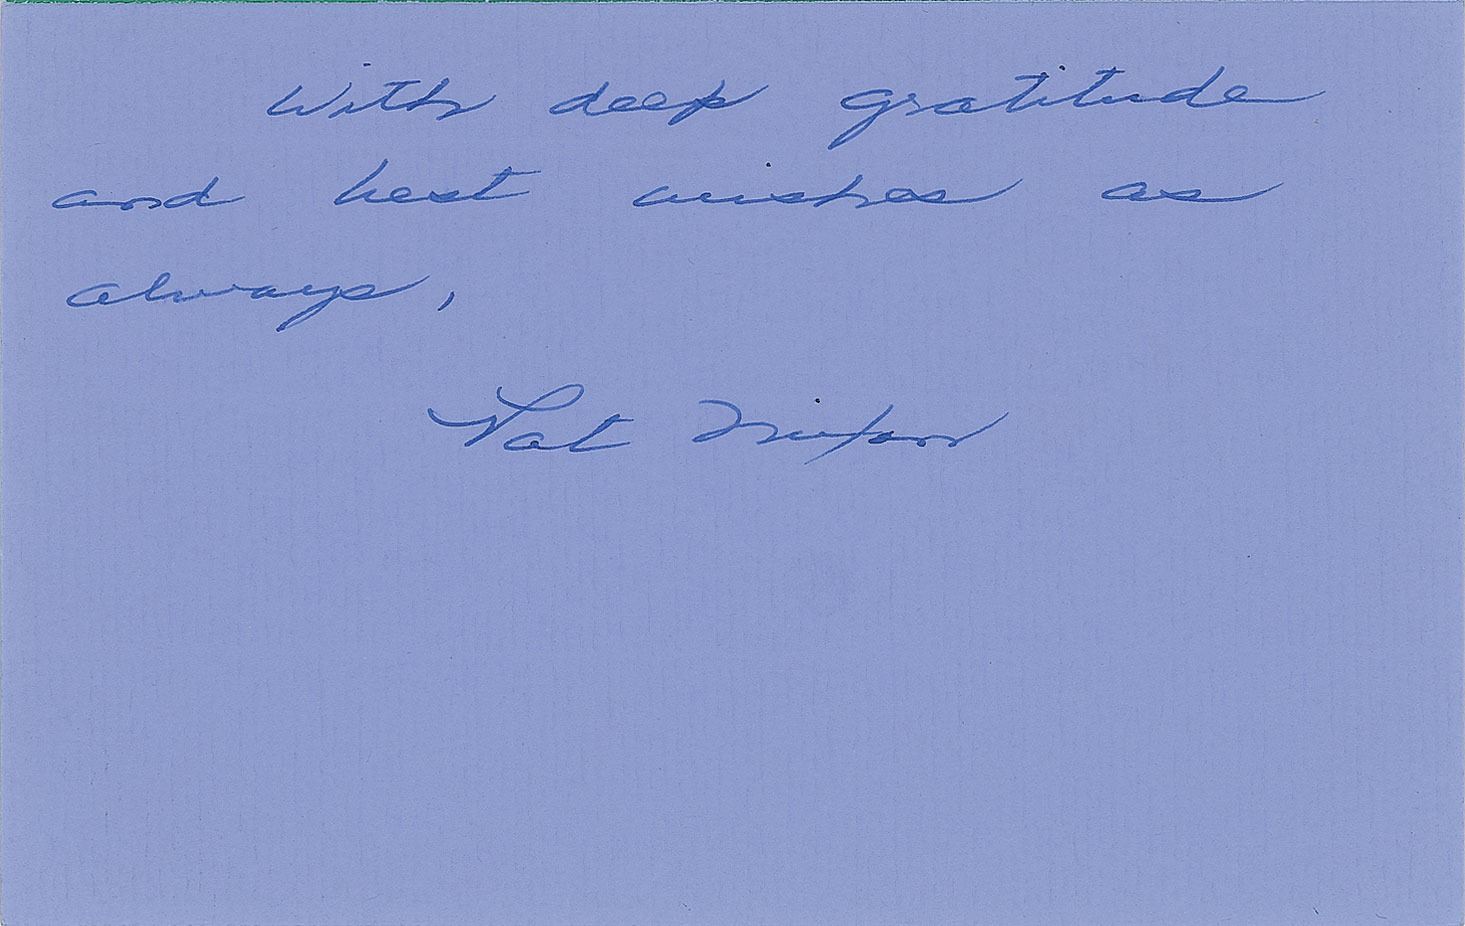 With deep gratitude
and best wishes as
always,
Pat Nixon